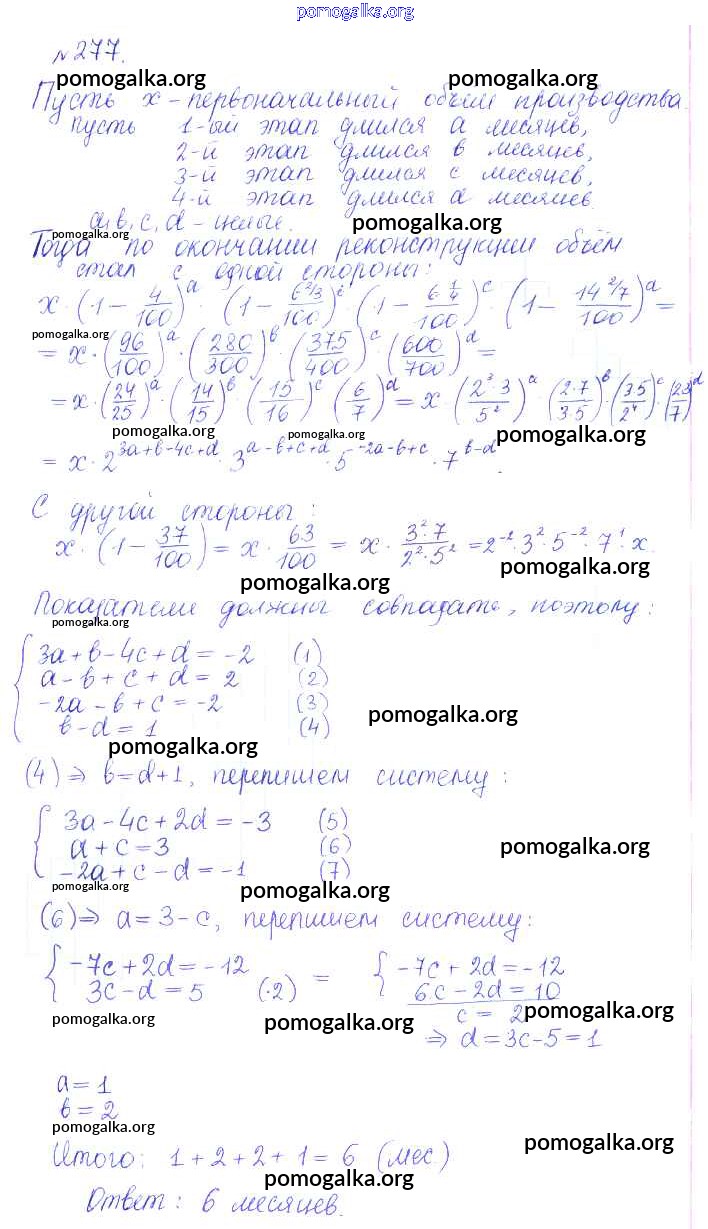 pomogalka.org
№ 277.
pomogalka.org pomogalka.org
Пусть x - первоначальный объём производства.
пусть 1-ый этап длился a месяцев,
2-й этап длился b месяцев,
3-й этап длился c месяцев,
4-й этап длился d месяцев.
a, b, c, d - целые.
pomogalka.org pomogalka.org
Тогда по окончании реконструкции объём
стал с одной стороны:
x · (1 - 4/100)^a · (1 - 6 2/3/100)^c · (1 - 6 1/4/100)^c · (1 - 14 2/7/100)^a =
pomogalka.org
= x · (96/100)^a · (280/300)^b · (375/400)^c (600/700)^d =
= x · (24/25)^a · (14/15)^b (15/16)^c (6/7)^d = x · (2³·3/5²)^a · (2·7/3·5)^b · (3·5/2⁴)^c · (2·3/7)^d
pomogalka.org pomogalka.org pomogalka.org
= x · 2^(3a+b-4c+d) · 3^(a-b+c+d) · 5^(-2a-b+c) · 7^(b-d).
С другой стороны:
x · (1 - 37/100) = x · 63/100 = x · 3²·7/2²·5² = 2⁻²·3²·5⁻²·7¹·x.
pomogalka.org pomogalka.org
Показатели должны совпадать, поэтому:
pomogalka.org
3a + b - 4c + d = -2 (1)
a - b + c + d = 2 (2)
-2a - b + c = -2 (3)
pomogalka.org
b - d = 1 (4)
pomogalka.org
(4) ⇒ b = d + 1, перепишем систему:
3a - 4c + 2d = -3 (5)
a + c = 3 (6)
pomogalka.org
-2a + c - d = -1 (7)
pomogalka.org pomogalka.org
(6) ⇒ a = 3 - c, перепишем систему:
-7c + 2d = -12 = -7c + 2d = -12
3c - d = 5 (·2) 6c - 2d = 10
c = 2
pomogalka.org pomogalka.org pomogalka.org
⇒ d = 3c - 5 = 1
a = 1
b = 2
pomogalka.org pomogalka.org
Итого: 1 + 2 + 2 + 1 = 6 (мес.)
pomogalka.org
Ответ: 6 месяцев.